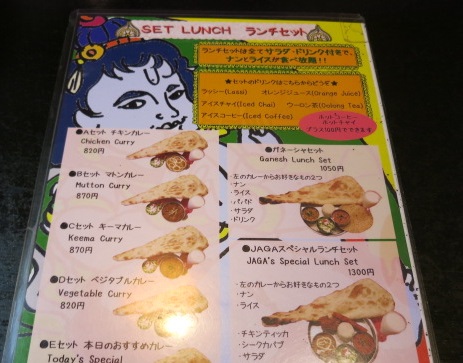 SET LUNCH ランチセット
ランチセットは全てサラダ・ドリンク付きで、
ナンとライスが食べ放題!!
★セットのドリンクはこちらからどうぞ★
ラッシー(Lassi) オレンジジュース(Orange Juice)
アイスチャイ(Iced Chai) ウーロン茶(Oolong Tea)
アイスコーヒー(Iced Coffee)
ホットコーヒー
ホットチャイ
プラス100円でできます
●Aセット チキンカレー
Chicken Curry
820円
●Bセット マトンカレー
Mutton Curry
870円
●Cセット キーマカレー
Keema Curry
870円
●Dセット ベジタブルカレー
Vegetable Curry
820円
●Eセット 本日のおすすめカレー
Today's Special
●ガネーシャセット
Ganesh Lunch Set
1050円
・左のカレーからお好きなもの2つ
・ナン
・ライス
・パパド
・サラダ
・ドリンク
●JAGAスペシャルランチセット
JAGA's Special Lunch Set
1300円
・左のカレーからお好きなもの2つ
・ナン
・ライス
・チキンティッカ
・シークカバブ
・サラダ